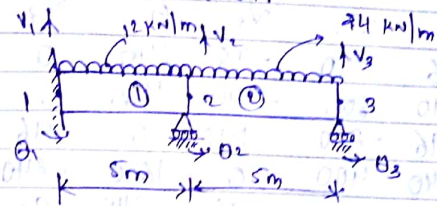 V₁ 12 KN/m V₂ 24 KN/m
V₃
1 ① 2 ② 3
θ₁ θ2 θ3
5m 5m